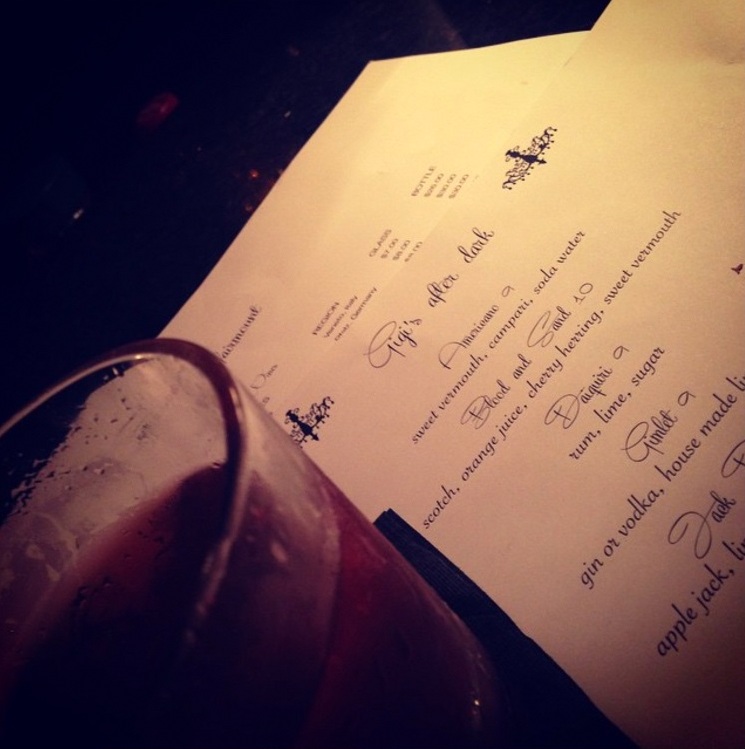 Gigi's after dark
Americano 9
sweet vermouth, campari, soda water
Blood and Sand 10
scotch, orange juice, cherry herring, sweet vermouth
Daiquiri 9
rum, lime, sugar
Gimlet 9
gin or vodka, house made
Jack
apple jack,
REGION
Veneto, Italy
Germany
GLASS
$7.00
$8.00
BOTTLE
$28.00
$30.00
$30.00